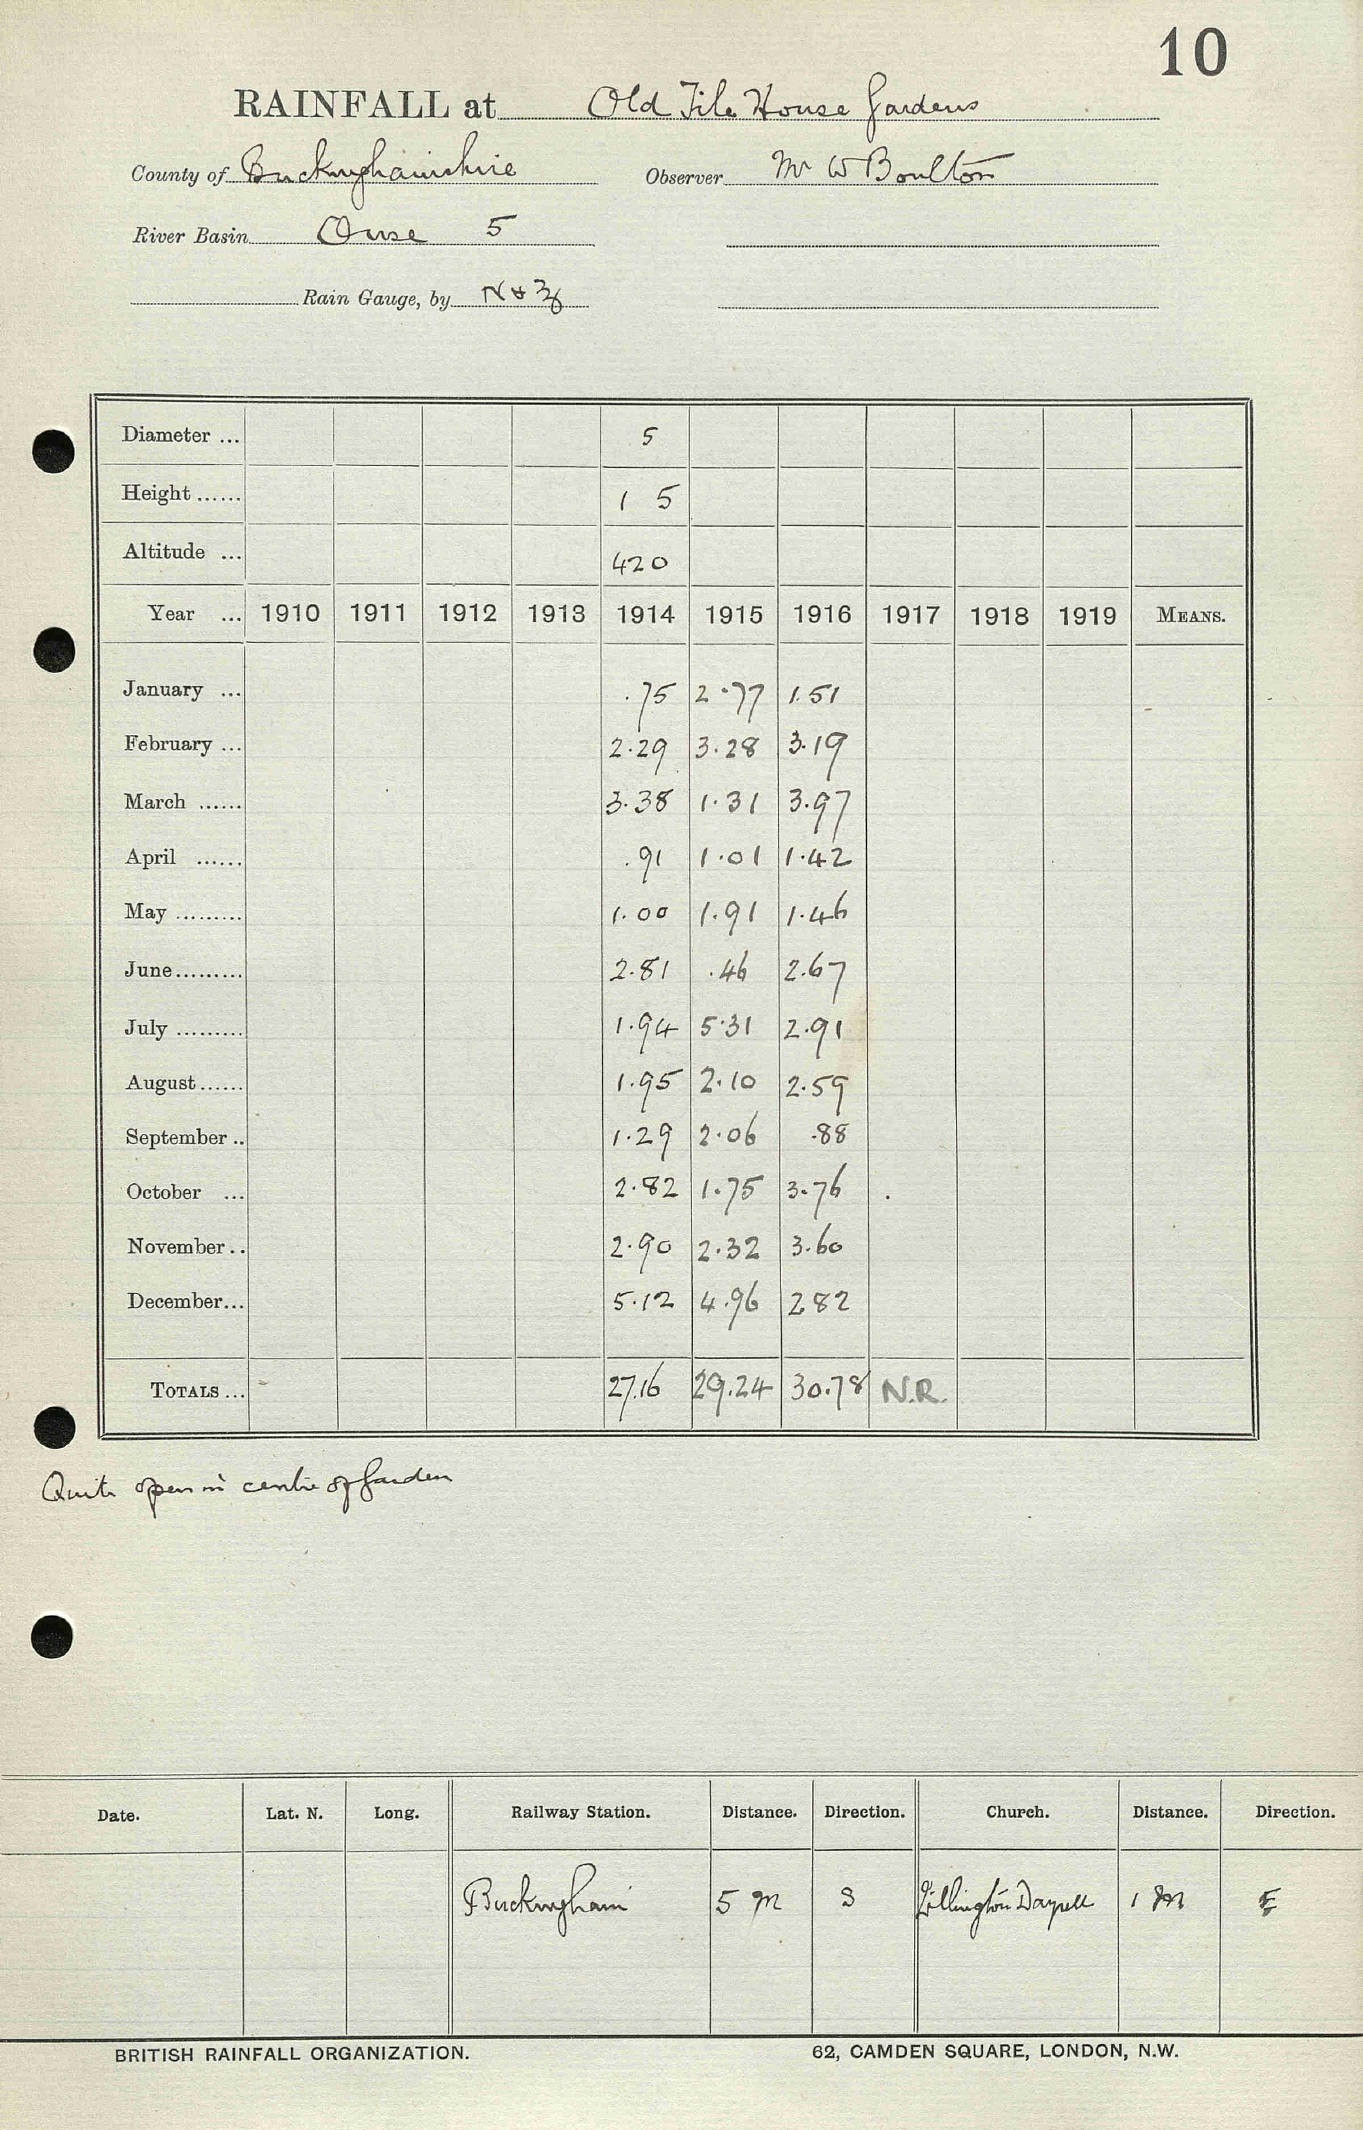 10
RAINFALL at Old Tile House Gardens
County of Buckinghamshire Observer Mr W Boulton
River Basin Ouse 5
Rain Gauge, by N & Z
Diameter ... 5
Height ...... 1 5
Altitude ... 420
Year ... 1910 1911 1912 1913 1914 1915 1916 1917 1918 1919 MEANS.
January ... .75 2.77 1.51
February ... 2.29 3.28 3.19
March ...... 3.38 1.31 3.97
April ...... .91 1.01 1.42
May ......... 1.00 1.91 1.46
June......... 2.81 .46 2.67
July ......... 1.94 5.31 2.91
August...... 1.95 2.10 2.59
September .. 1.29 2.06 .88
October ... 2.82 1.75 3.76 .
November .. 2.90 2.32 3.60
December... 5.12 4.96 2.82
TOTALS ... 27.16 29.24 30.78 N.R.
Quite open in centre of Garden
Date. Lat. N. Long. Railway Station. Distance. Direction. Church. Distance. Direction.
Buckingham 5 m S Lillington Dayrell 1 m E
BRITISH RAINFALL ORGANIZATION. 62, CAMDEN SQUARE, LONDON, N.W.